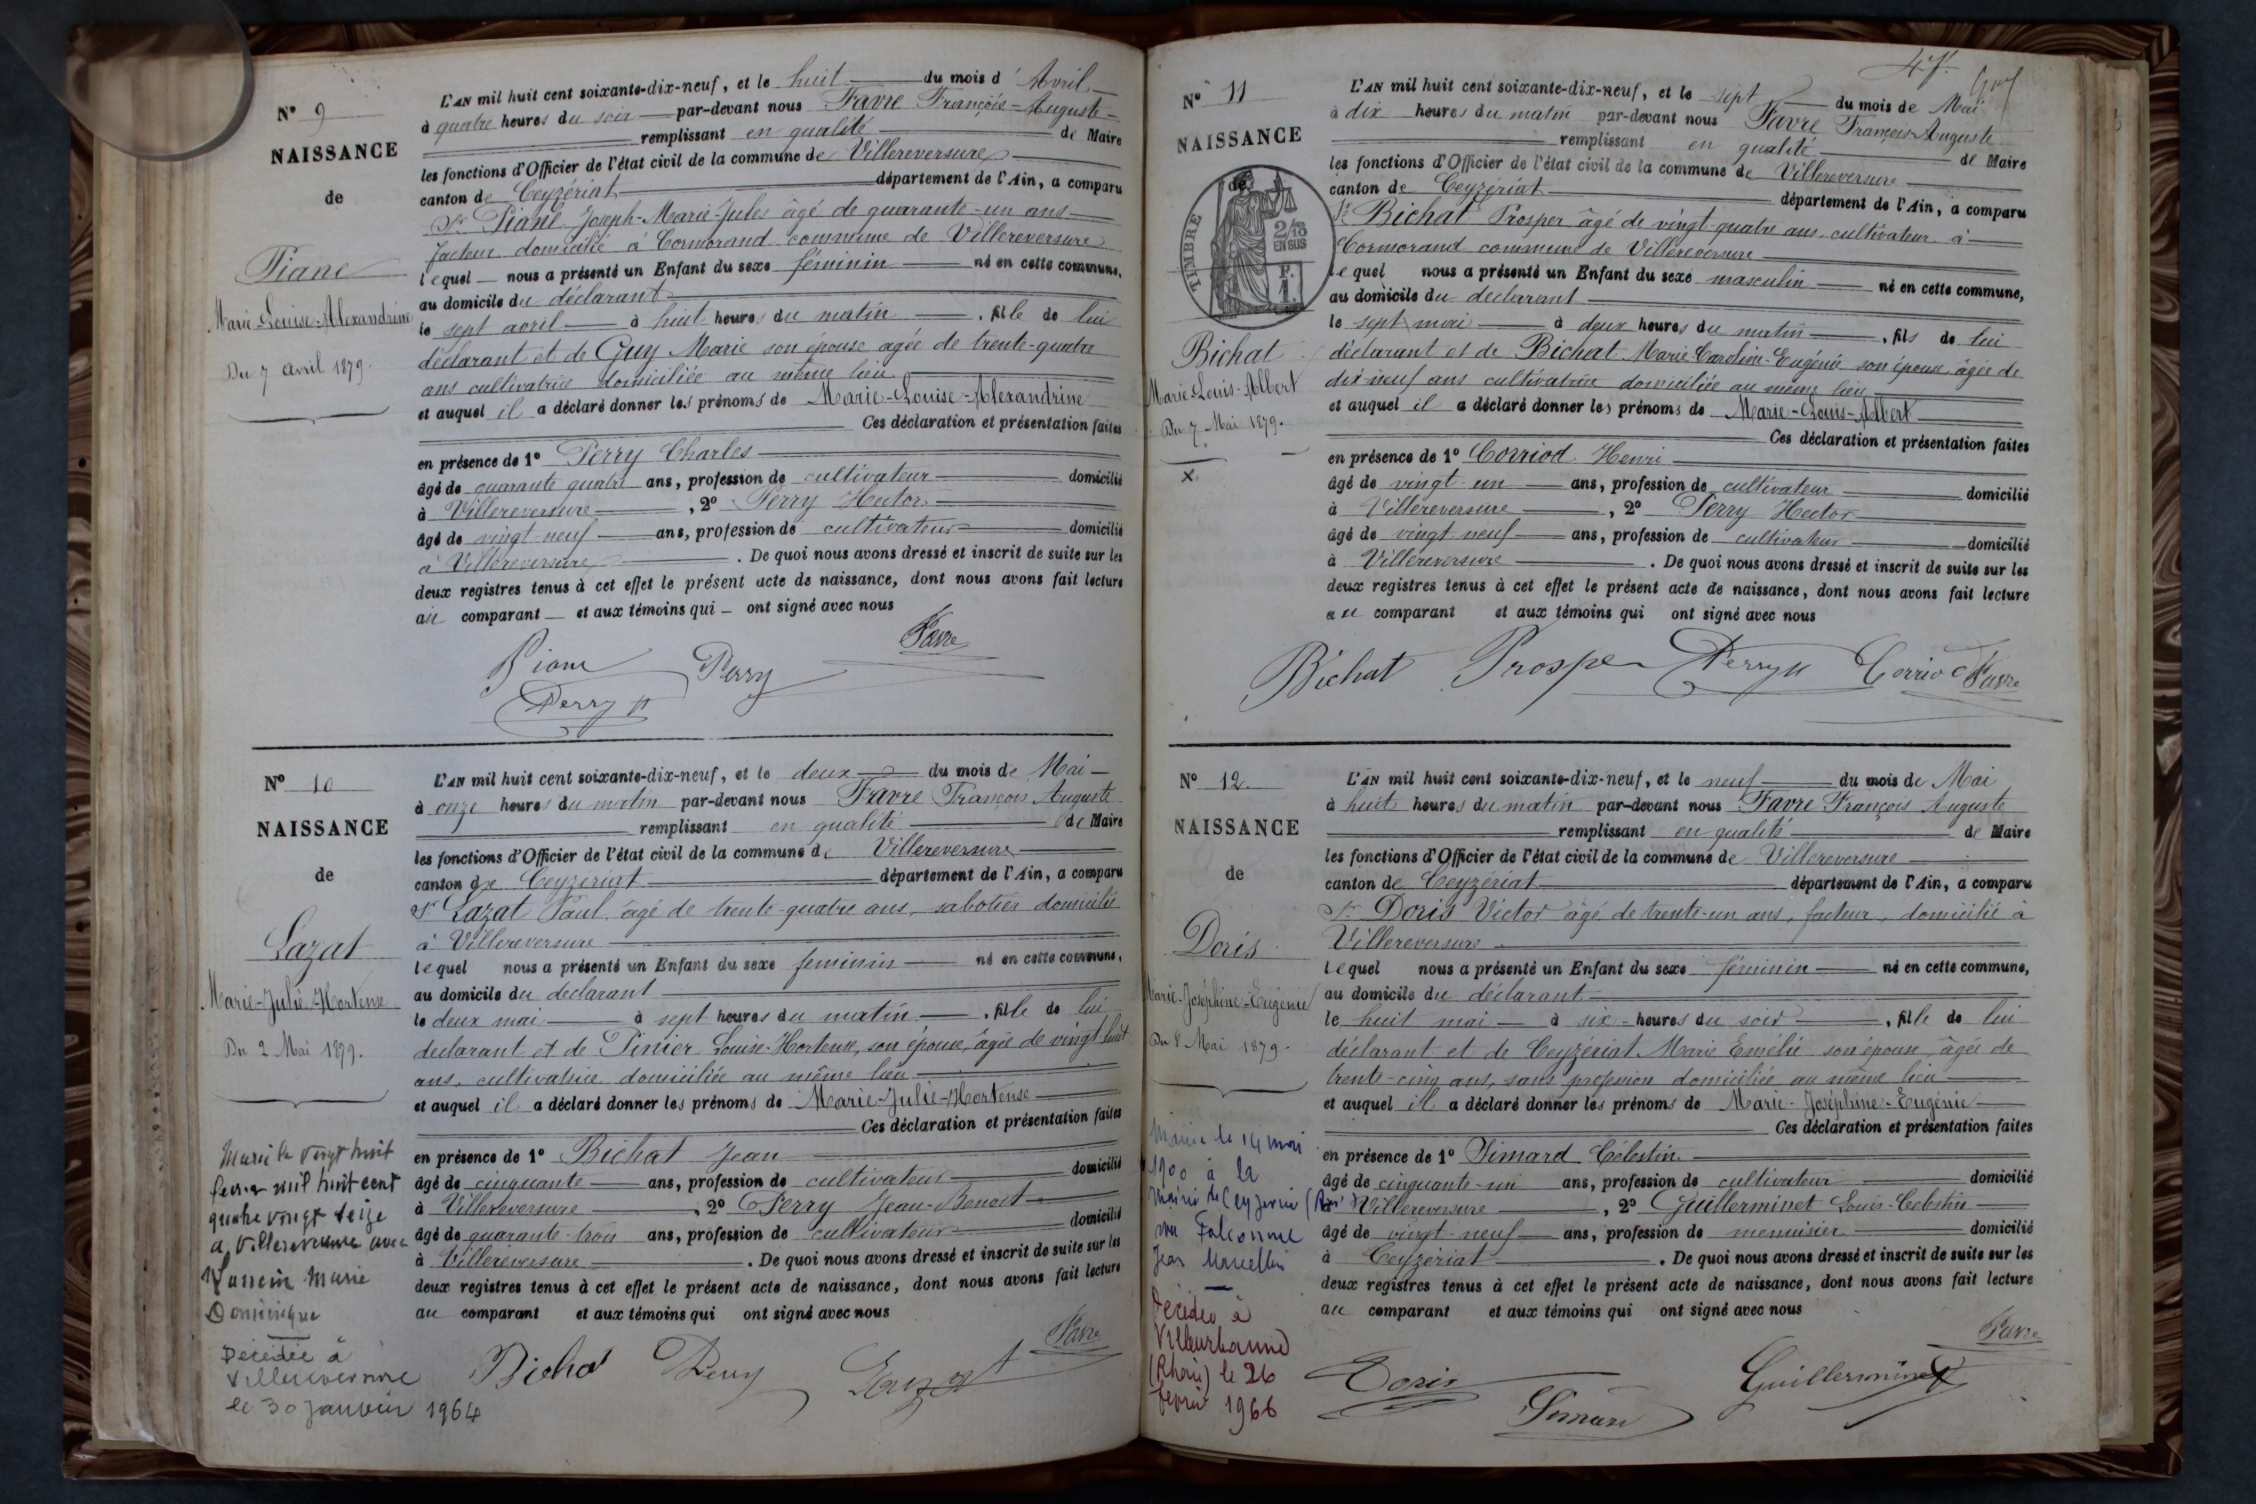 N° 9
NAISSANCE
de
Piane
Marie-Louise-Alexandrine
Du 7 avril 1879.
L'AN mil huit cent soixante-dix-neuf, et le huit du mois d'Avril
à quatre heures du soir par-devant nous Favre François-Auguste
remplissant en qualité de Maire
les fonctions d'Officier de l'état civil de la commune de Villereversure
canton de Ceyzériat département de l'Ain, a comparu
Sr Piane Joseph-Marie-Jules âgé de quarante-un ans
facteur domicilié à Cormorand commune de Villereversure
lequel nous a présenté un Enfant du sexe féminin né en cette commune,
au domicile du déclarant
le sept avril à huit heures du matin, fille de lui
déclarant et de Guy Marie son épouse agée de trente-quatre
ans cultivatrice domiciliée au même lieu
et auquel il a déclaré donner les prénoms de Marie-Louise-Alexandrine
Ces déclaration et présentation faites
en présence de 1° Perry Charles
âgé de quarante quatre ans, profession de cultivateur domicilié
à Villereversure, 2° Perry Hector
âgé de vingt neuf ans, profession de cultivateur domicilié
à Villereversure. De quoi nous avons dressé et inscrit de suite sur les
deux registres tenus à cet effet le présent acte de naissance, dont nous avons fait lecture
au comparant et aux témoins qui ont signé avec nous
Favre
Piane Perry
Perry H
N° 10
NAISSANCE
de
Lazat
Marie-Julie-Hortense
Du 2 Mai 1879.
Marié le vingt huit
février mil huit cent
quatre vingt seize
à Villereversure avec
Marie
Dominique
Décédée à
Villereversure
le 30 Janvier 1964
L'AN mil huit cent soixante-dix-neuf, et le deux du mois de Mai
à onze heures du matin par-devant nous Favre François Auguste
remplissant en qualité de Maire
les fonctions d'Officier de l'état civil de la commune de Villereversure
canton de Ceyzeriat département de l'Ain, a comparu
Sr Lazat Paul, âgé de trente-quatre ans, sabotier domicilié
à Villereversure
lequel nous a présenté un Enfant du sexe feminin né en cette commune,
au domicile du declarant
le deux mai à sept heures du matin, fille de lui
declarant et de Pinier Louise-Hortense, son épouse, âgée de vingt huit
ans, cultivatrice domiciliée au même lieu
et auquel il a déclaré donner les prénoms de Marie-Julie-Hortense
Ces déclaration et présentation faites
en présence de 1° Bichat Jean
âgé de cinquante ans, profession de cultivateur domicilié
à Villereversure, 2° Perry Jean-Benoit
âgé de quarante-trois ans, profession de cultivateur domicilié
à Villereversure. De quoi nous avons dressé et inscrit de suite sur les
deux registres tenus à cet effet le présent acte de naissance, dont nous avons fait lecture
au comparant et aux témoins qui ont signé avec nous
Favre
Bichat Perry Lazat
47
N° 11
NAISSANCE
de
TIMBRE
2/10
EN SUS
Bichat
Marie-Louis-Albert
Du 7 Mai 1879.
x
L'AN mil huit cent soixante-dix-neuf, et le sept du mois de Mai
à dix heures du matin par-devant nous Favre François-Auguste
remplissant en qualité de Maire
les fonctions d'Officier de l'état civil de la commune de Villereversure
canton de Ceyzériat département de l'Ain, a comparu
Sr Bichat Prosper âgé de vingt-quatre ans, cultivateur à
Cormorand commune de Villereversure
lequel nous a présenté un Enfant du sexe masculin né en cette commune,
au domicile du declarant
le sept mai à deux heures du matin, fils de lui
déclarant et de Bichat Marie Caroline-Eugénie son épouse âgée de
dix-neuf ans cultivatrice domiciliée au même lieu
et auquel il a déclaré donner les prénoms de Marie-Louis-Albert
Ces déclaration et présentation faites
en présence de 1° Corriod Henri
âgé de vingt un ans, profession de cultivateur domicilié
à Villereversure, 2° Perry Hector
âgé de vingt neuf ans, profession de cultivateur domicilié
à Villereversure. De quoi nous avons dressé et inscrit de suite sur les
deux registres tenus à cet effet le présent acte de naissance, dont nous avons fait lecture
au comparant et aux témoins qui ont signé avec nous
Bichat Prosper Perry H Corriod Favre
N° 12.
NAISSANCE
de
Doris
Marie-Joséphine-Eugénie
Du 8 Mai 1879.
Mariée le 14 mai
1900 à la
mairie de Ceyzeriat (Ain)
Falconne
Jean Marcellin
Décédée à
Villeurbanne
(Rhône) le 26
février 1966
L'AN mil huit cent soixante-dix-neuf, et le neuf du mois de Mai
à huit heures du matin par-devant nous Favre François Auguste
remplissant en qualité de Maire
les fonctions d'Officier de l'état civil de la commune de Villereversure
canton de Ceyzériat département de l'Ain, a comparu
Sr Doris Victor âgé de trente-un ans, facteur, domicilié à
Villereversure
lequel nous a présenté un Enfant du sexe féminin né en cette commune,
au domicile du déclarant
le huit mai à six heures du soir, fille de lui
déclarant et de Ceyzériat Marie Emélie son épouse âgée de
trente-cinq ans, sans profession domiciliée au même lieu
et auquel il a déclaré donner les prénoms de Marie-Joséphine-Eugénie
Ces déclaration et présentation faites
en présence de 1° Simard Célestin
âgé de cinquante-un ans, profession de cultivateur domicilié
à Villereversure, 2° Guillerminet Louis-Celestin
âgé de vingt-neuf ans, profession de menuisier domicilié
à Ceyzériat. De quoi nous avons dressé et inscrit de suite sur les
deux registres tenus à cet effet le présent acte de naissance, dont nous avons fait lecture
au comparant et aux témoins qui ont signé avec nous
Favre
Doris Simard Guillerminet